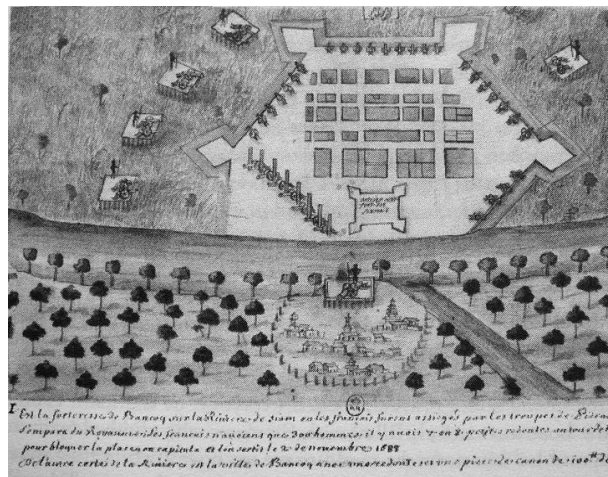 ancien petit
fort des
siamois
I Est la forteresse de Bancoq sur la Riviere de siam ou les français furent assiegés par les troupes de
s'empara du Royaume les francois n'avoient que 300 hommes, il y avoit 7 ou 8 petites redoutes autour
pour bloquer la place on capitula et l'on sortit le 2 de novembre 1688
De l'autre costé de la Riviere est la ville de Bancoq avec une redoute et une piece de canon de 100 tt de